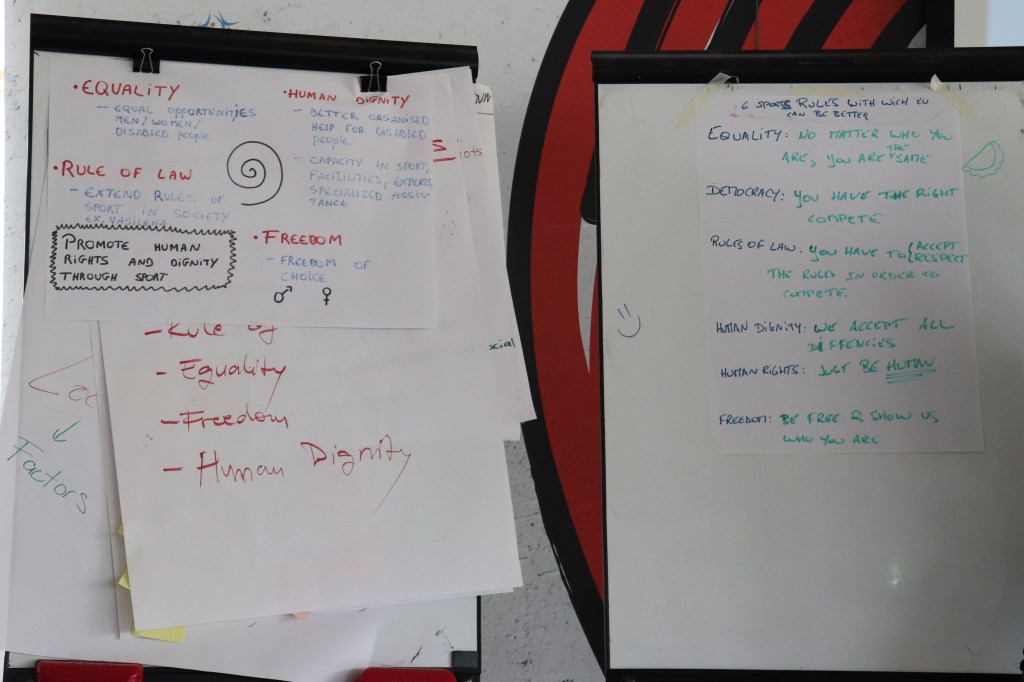 • EQUALITY
– EQUAL OPPORTUNITIES
MEN/WOMEN/
DISABLED people
• RULE OF LAW
– EXTEND RULES OF
SPORT IN SOCIETY
EX. VASILENA
PROMOTE HUMAN
RIGHTS AND DIGNITY
THROUGH SPORT
• HUMAN DIGNITY
– BETTER ORGANISED
HELP FOR DISABLED
people
– CAPACITY IN SPORT,
FACILITIES, EXPERTS
SPECIALIZED ASSIS-
TANCE
• FREEDOM
– FREEDOM OF
CHOICE
♂ ♀
– Rule of
– Equality
– Freedom
– Human Dignity
Factors
6 SPORTS RULES WITH WICH EU
CAN BE BETTER
EQUALITY: NO MATTER WHO YOU
ARE, YOU ARE THE SAME
DEMOCRACY: YOU HAVE THE RIGHT
COMPETE
RULES OF LAW: YOU HAVE TO { ACCEPT
RESPECT
THE RULES IN ORDER TO
COMPETE.
HUMAN DIGNITY: WE ACCEPT ALL
DIFFENCIES
HUMAN RIGHTS: JUST BE HUMAN
FREEDOM: BE FREE & SHOW US
WHO YOU ARE